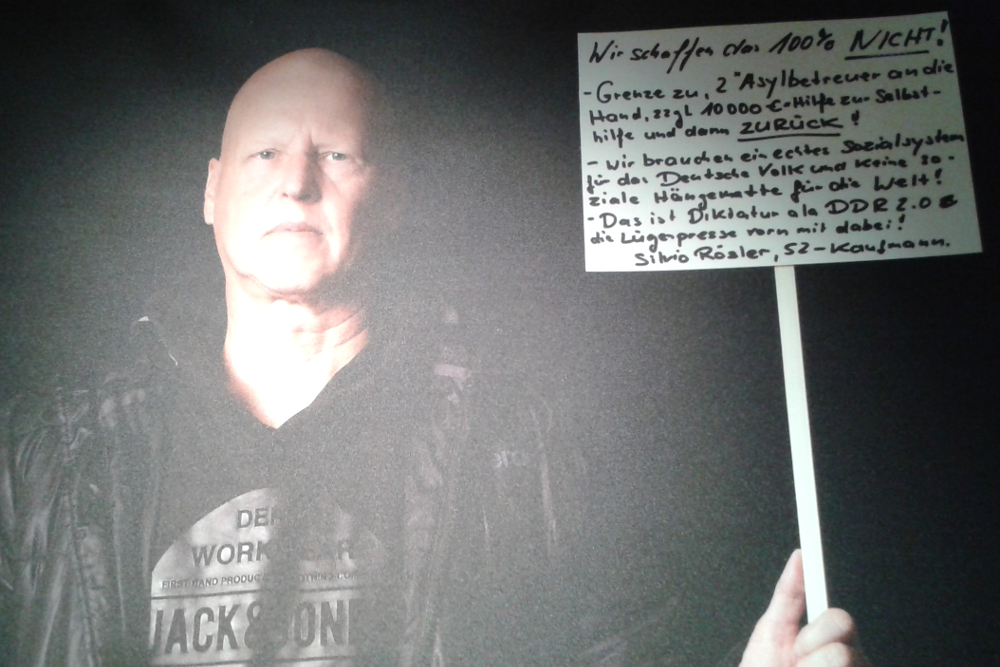 Wir schaffen das 100% NICHT!
- Grenze zu, 2 "Asylbetreuer an die
Hand, zzgl 10000 €-Hilfe zur Selbst-
hilfe und dann ZURÜCK!
- wir brauchen ein echtes Sozialsystem
für das Deutsche Volk und keine so-
ziale Hängematte für die Welt!
- Das ist Diktatur ala DDR 2.0 &
die Lügenpresse vorn mit dabei!
Silvio Rösler, 52-Kaufmann.
DE
WORK EAR
FIRST HAND PRODUC
JACK & JONE